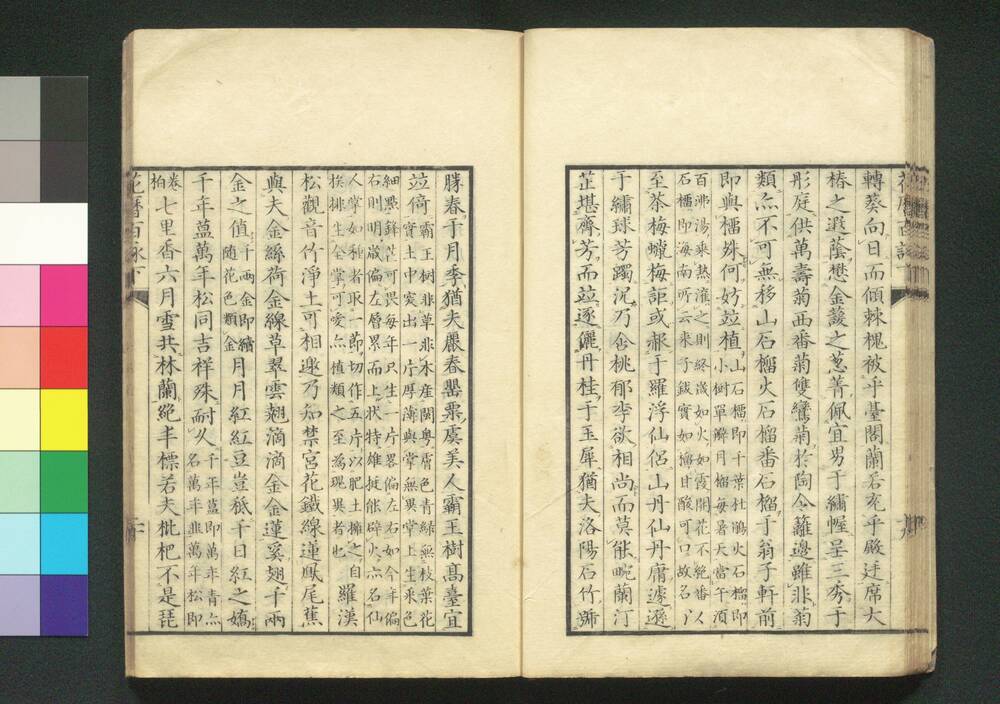 轉葵向日而傾棘槐被乎臺閣蘭若充乎殿廷席大
椿之遐蔭懋金萲之葱菁佩宜男于繡幄呈三秀于
彤庭供萬壽菊西番菊雙鸞菊於陶令籬邊雖非菊
類亦不可無移山石榴火石榴番石榴于翁子軒前
即與榴殊何妨竝植山石榴即千葉杜鵑火石榴即
小樹單瓣月榴每暑天當午須
百沸湯乘熱灌之則終歲如火如霞開花不絶番
石榴即海南所云來子鈸實如梅甘酸可口故名
至茶梅蠟梅詎或赧于羅浮仙侶山丹仙丹庸遽遜
于繡球芳躅沉乃金桃郁李欲相尚而莫能畹蘭汀
芷堪齊芳而竝逐儷丹桂于玉犀猶夫洛陽石竹
勝春于月季猶夫麗春罌粟虞美人霸王樹高臺宜
竝倚霸王樹非草非木産閩粤膚色青緑無枝葉花
實土中突出一片厚薄與掌無異掌上生釆色
細點鋒芒可畏每年只生一片畧偏左右如今年偏
右則明歳偏左層累而上狀特雄挺能碎火亦名仙
人掌如種者取一節切作五片以肥土擁之自
挨排生全掌可愛亦植類之至爲現異者也
羅漢
松觀音竹淨土可相邀乃知禁宮花鐵線蓮鳳尾蕉
與夫金絲荷金線草翠雲翹滴滴金金蓮奚翅千兩
金之値千兩金即續
随花色類金
月月紅紅豆豈秪千日紅之嬌
千年蒀萬年松同吉祥殊耐久千年蒀即萬年青亦
名萬年韭萬年松即
卷
柏
七里香六月雪共林蘭絶丰標若夫枇杷不是琵
花暦百詠下